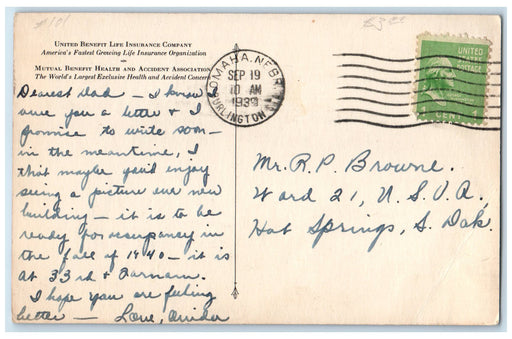 #101
UNITED BENEFIT LIFE INSURANCE COMPANY
America's Fastest Growing Life Insurance Organization
MUTUAL BENEFIT HEALTH AND ACCIDENT ASSOCIATION
The World's Largest Exclusive Health and Accident Concern
OMAHA, NEBR
SEP 19
10 AM
1939
BURLINGTON
UNITED
STATES
POSTAGE
CENT
Dearest Dad – I know I
owe you a letter & I
promise to write soon –
in the meantime, I
that maybe you'd enjoy
seeing a picture our new
building – it is to be
ready for occupancy in
the fall of 1940 – it is
at 33rd & Farnam.
I hope you are feeling
better – Love,
Mr. R. P. Browne.
Ward 21, U.S.V.A.,
Hot Springs, S. Dak.